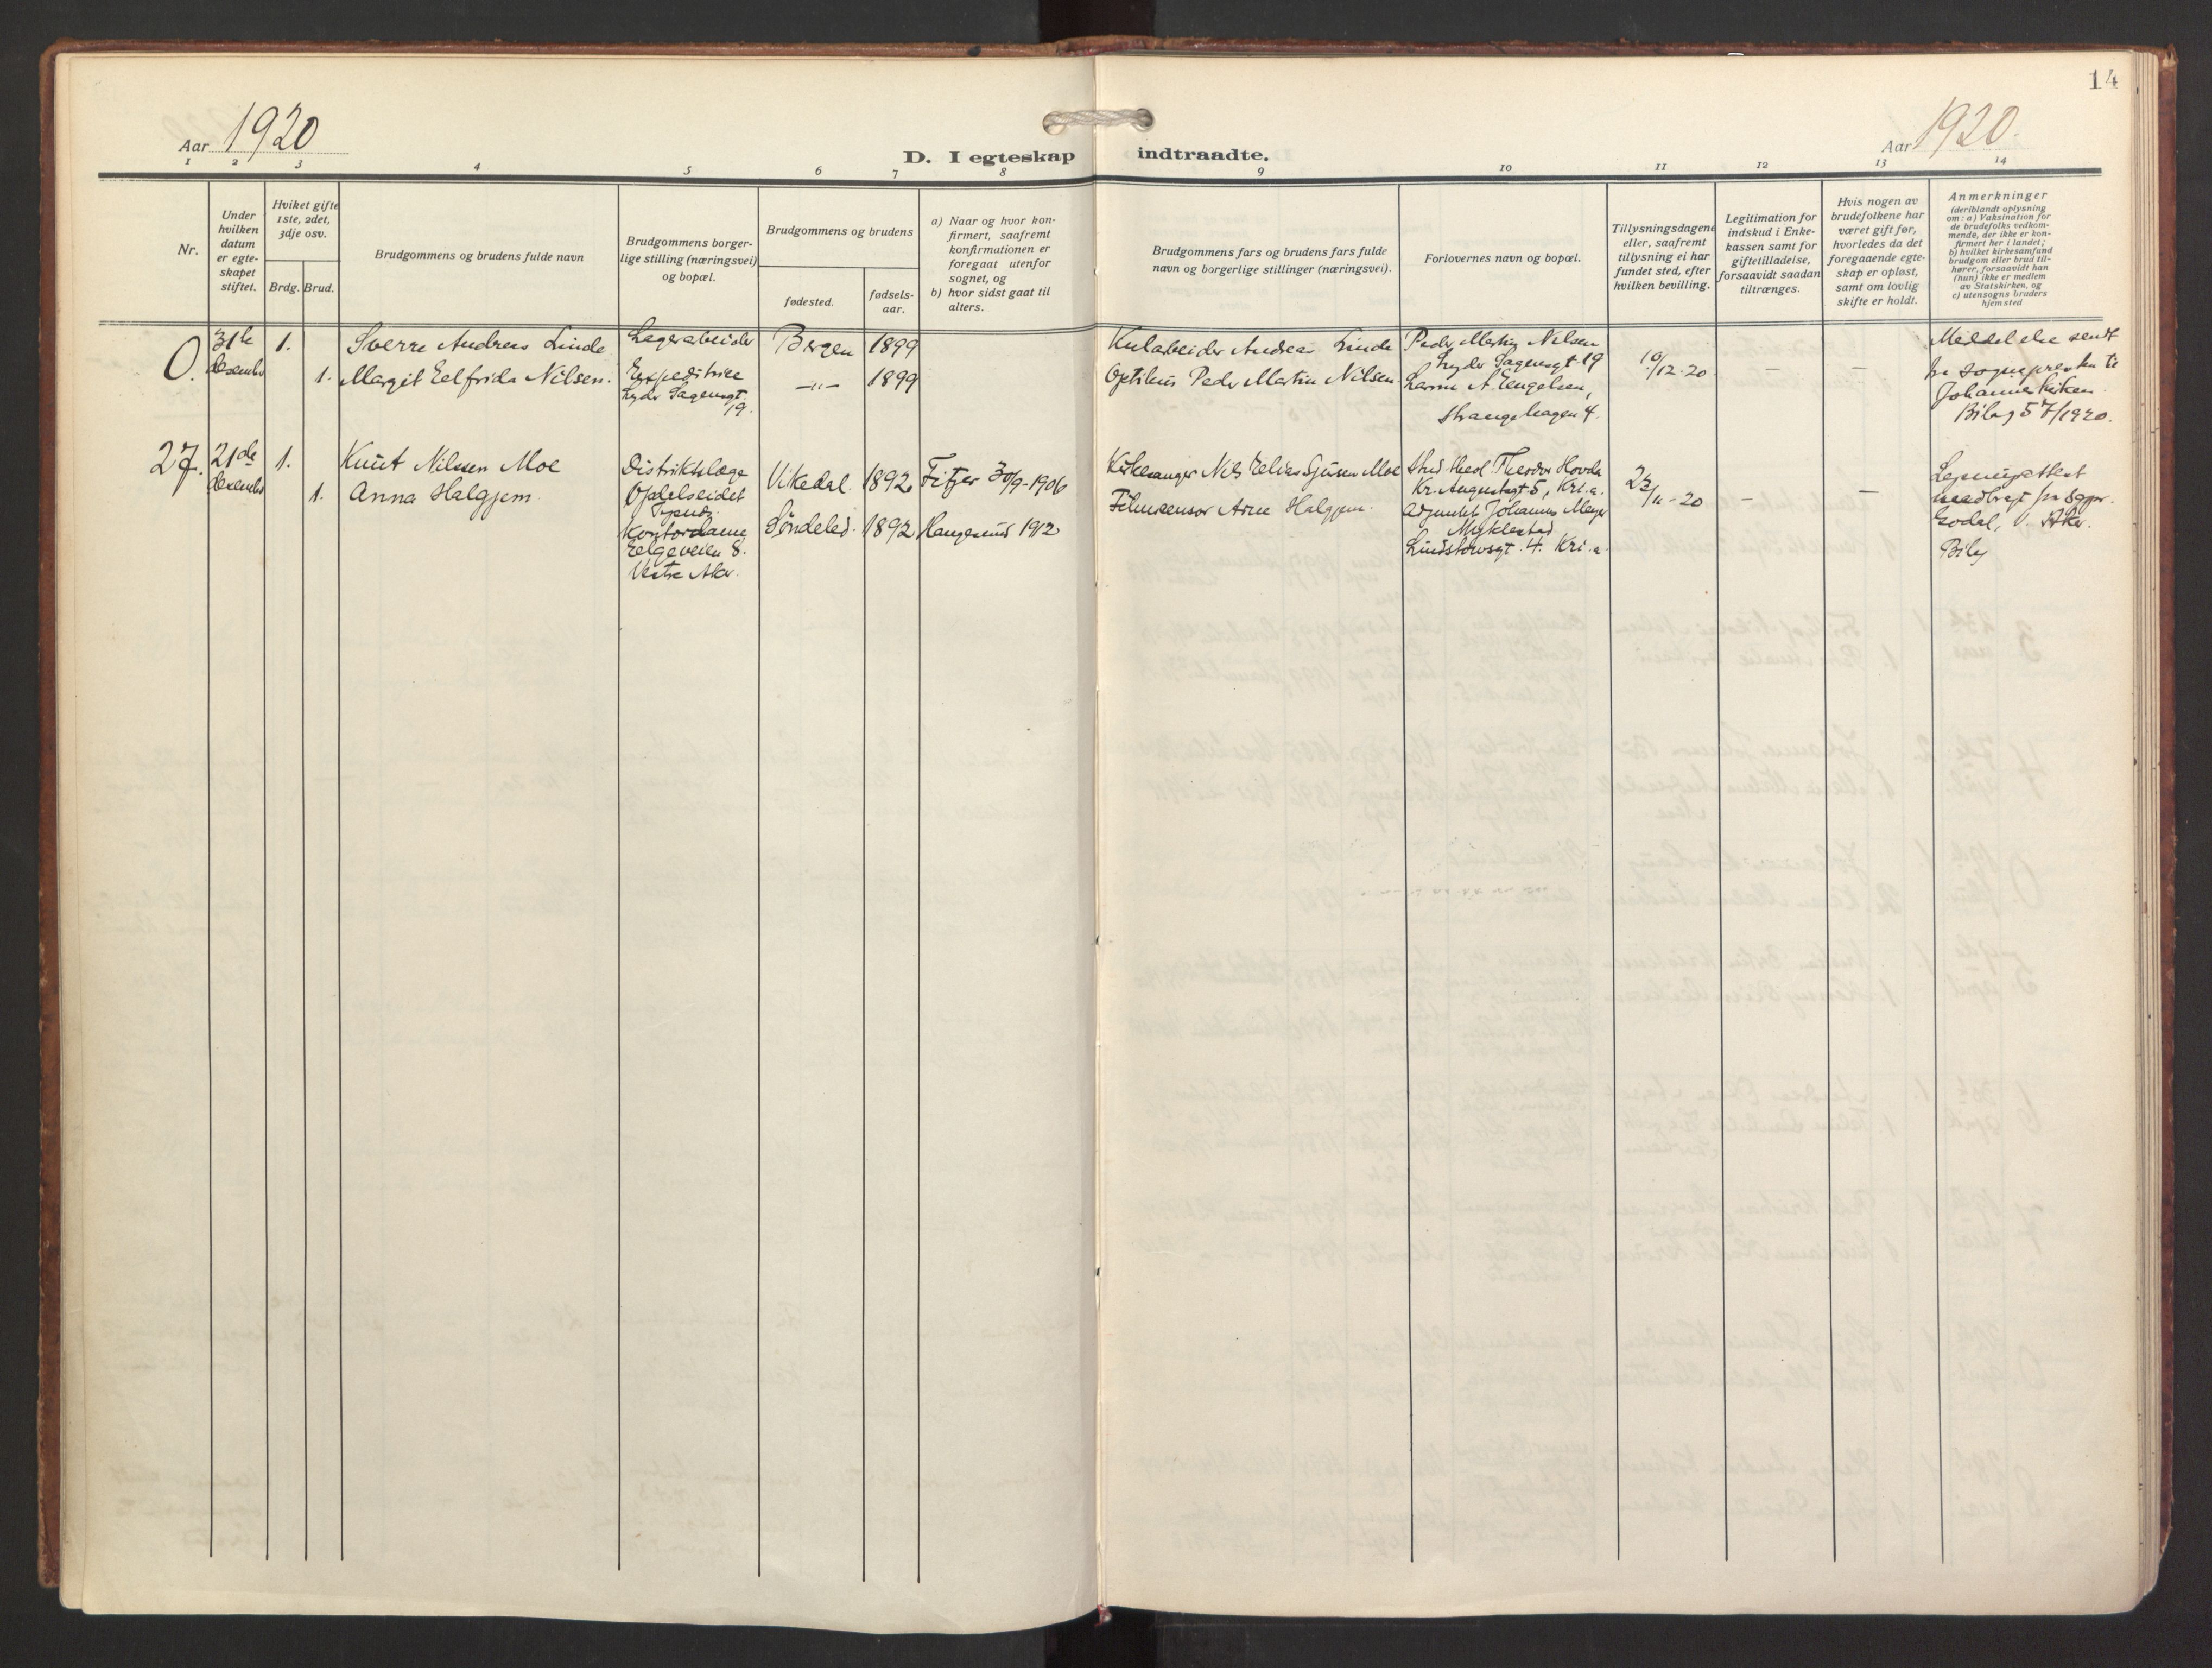 14
Aar 1920
Aar 1920.
D. I egteskap indtraadte.
1 2 3 4 5 6 7 8 9 10 11 12 13 14
Nr.
Under
hvilken
datum
er egte-
skapet
stiftet.
Hviket gifte
1ste, 2det,
3dje osv.
Brdg. Brud.
Brudgommens og brudens fulde navn
Brudgommens borger-
lige stilling (næringsvei)
og bopæl.
Brudgommens og brudens
fødested.
fødsels-
aar.
a) Naar og hvor kon-
firmert, saafremt
konfirmationen er
foregaat utenfor
sognet, og
b) hvor sidst gaat til
alters.
Brudgommens fars og brudens fars fulde
navn og borgerlige stillinger (næringsvei).
Forlovernes navn og bopæl.
Tillysningsdagene
eller, saafremt
tillysning ei har
fundet sted, efter
hvilken bevilling.
Legitimation for
indskud i Enke-
kassen samt for
giftetilladelse,
forsaavidt saadan
tiltrænges.
Hvis nogen av
brudefolkene har
været gift før,
hvorledes da det
foregaaende egte-
skap er opløst,
samt om lovlig
skifte er holdt.
Anmerkninger
(deriblandt oplysning
om: a) Vaksination for
de brudefolks vedkom-
mende, der ikke er kon-
firmert her i landet;
b) hvilket kirkesamfund
brudgom eller brud til-
hører, forsaavidt han
(hun) ikke er medlem
av Statskirken, og
c) utensogns bruders
hjemsted
0.
31te
desember
1.
1.
Sverre Andreas Linde
Margit Eelfrida Nilsen.
Lagerarbeider
Expeditrice
Lyder Sagensgt
19.
Bergen
—„—
1899
1899
Kularbeider Andreas Linde
Optikus Peder Martin Nilsen
Peder Martin Nilsen
Lyder Sagensgt 19
A. Engelsen,
Strangehagen 4.
10/12-20
—
—
Meddelelse sendt
fra sognepresten til
Johanneskirken.
Bilag 57/1920.
27.
21de
desember
1.
1.
Knut Nilssen Moe
Anna Halgjem.
Distriktslæge
Opdelseidet
Kontordame
Vestre Aker.
Vikedal.
Søndeled.
1892
1892
Fitjar 30/9-1906
Haugesund 1912
Kirkesanger Nils Elias Moe
Filmcensor Arne Halgjem.
Stud. theol. Theodor Hovda
Kr. Augustsgt 5, Kr.a.
Adjunkt Johannes Meyer
Myklestad
Lindstowsgt. 4. Kri.a.
23/11-20
—
—
Lysningsattest
medbragt fra sogpr.
Godal, V. Aker.
Bilag